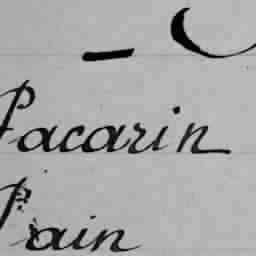 Pacarin
Pain